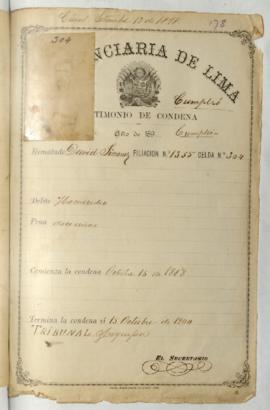 178
304
NCIARIA DE LIMA
Cumplió
TIMONIO DE CONDENA
Año de 189 Cumplió
Rematado David FILIACION N.º 1355 CELDA N.º 304
Delito Homicidio
Pena doce años
Comienza la condena Octubre 15 de 1888
Termina la condena el 15 Octubre de 1900
TRIBUNAL Arequipa
EL SECRETARIO